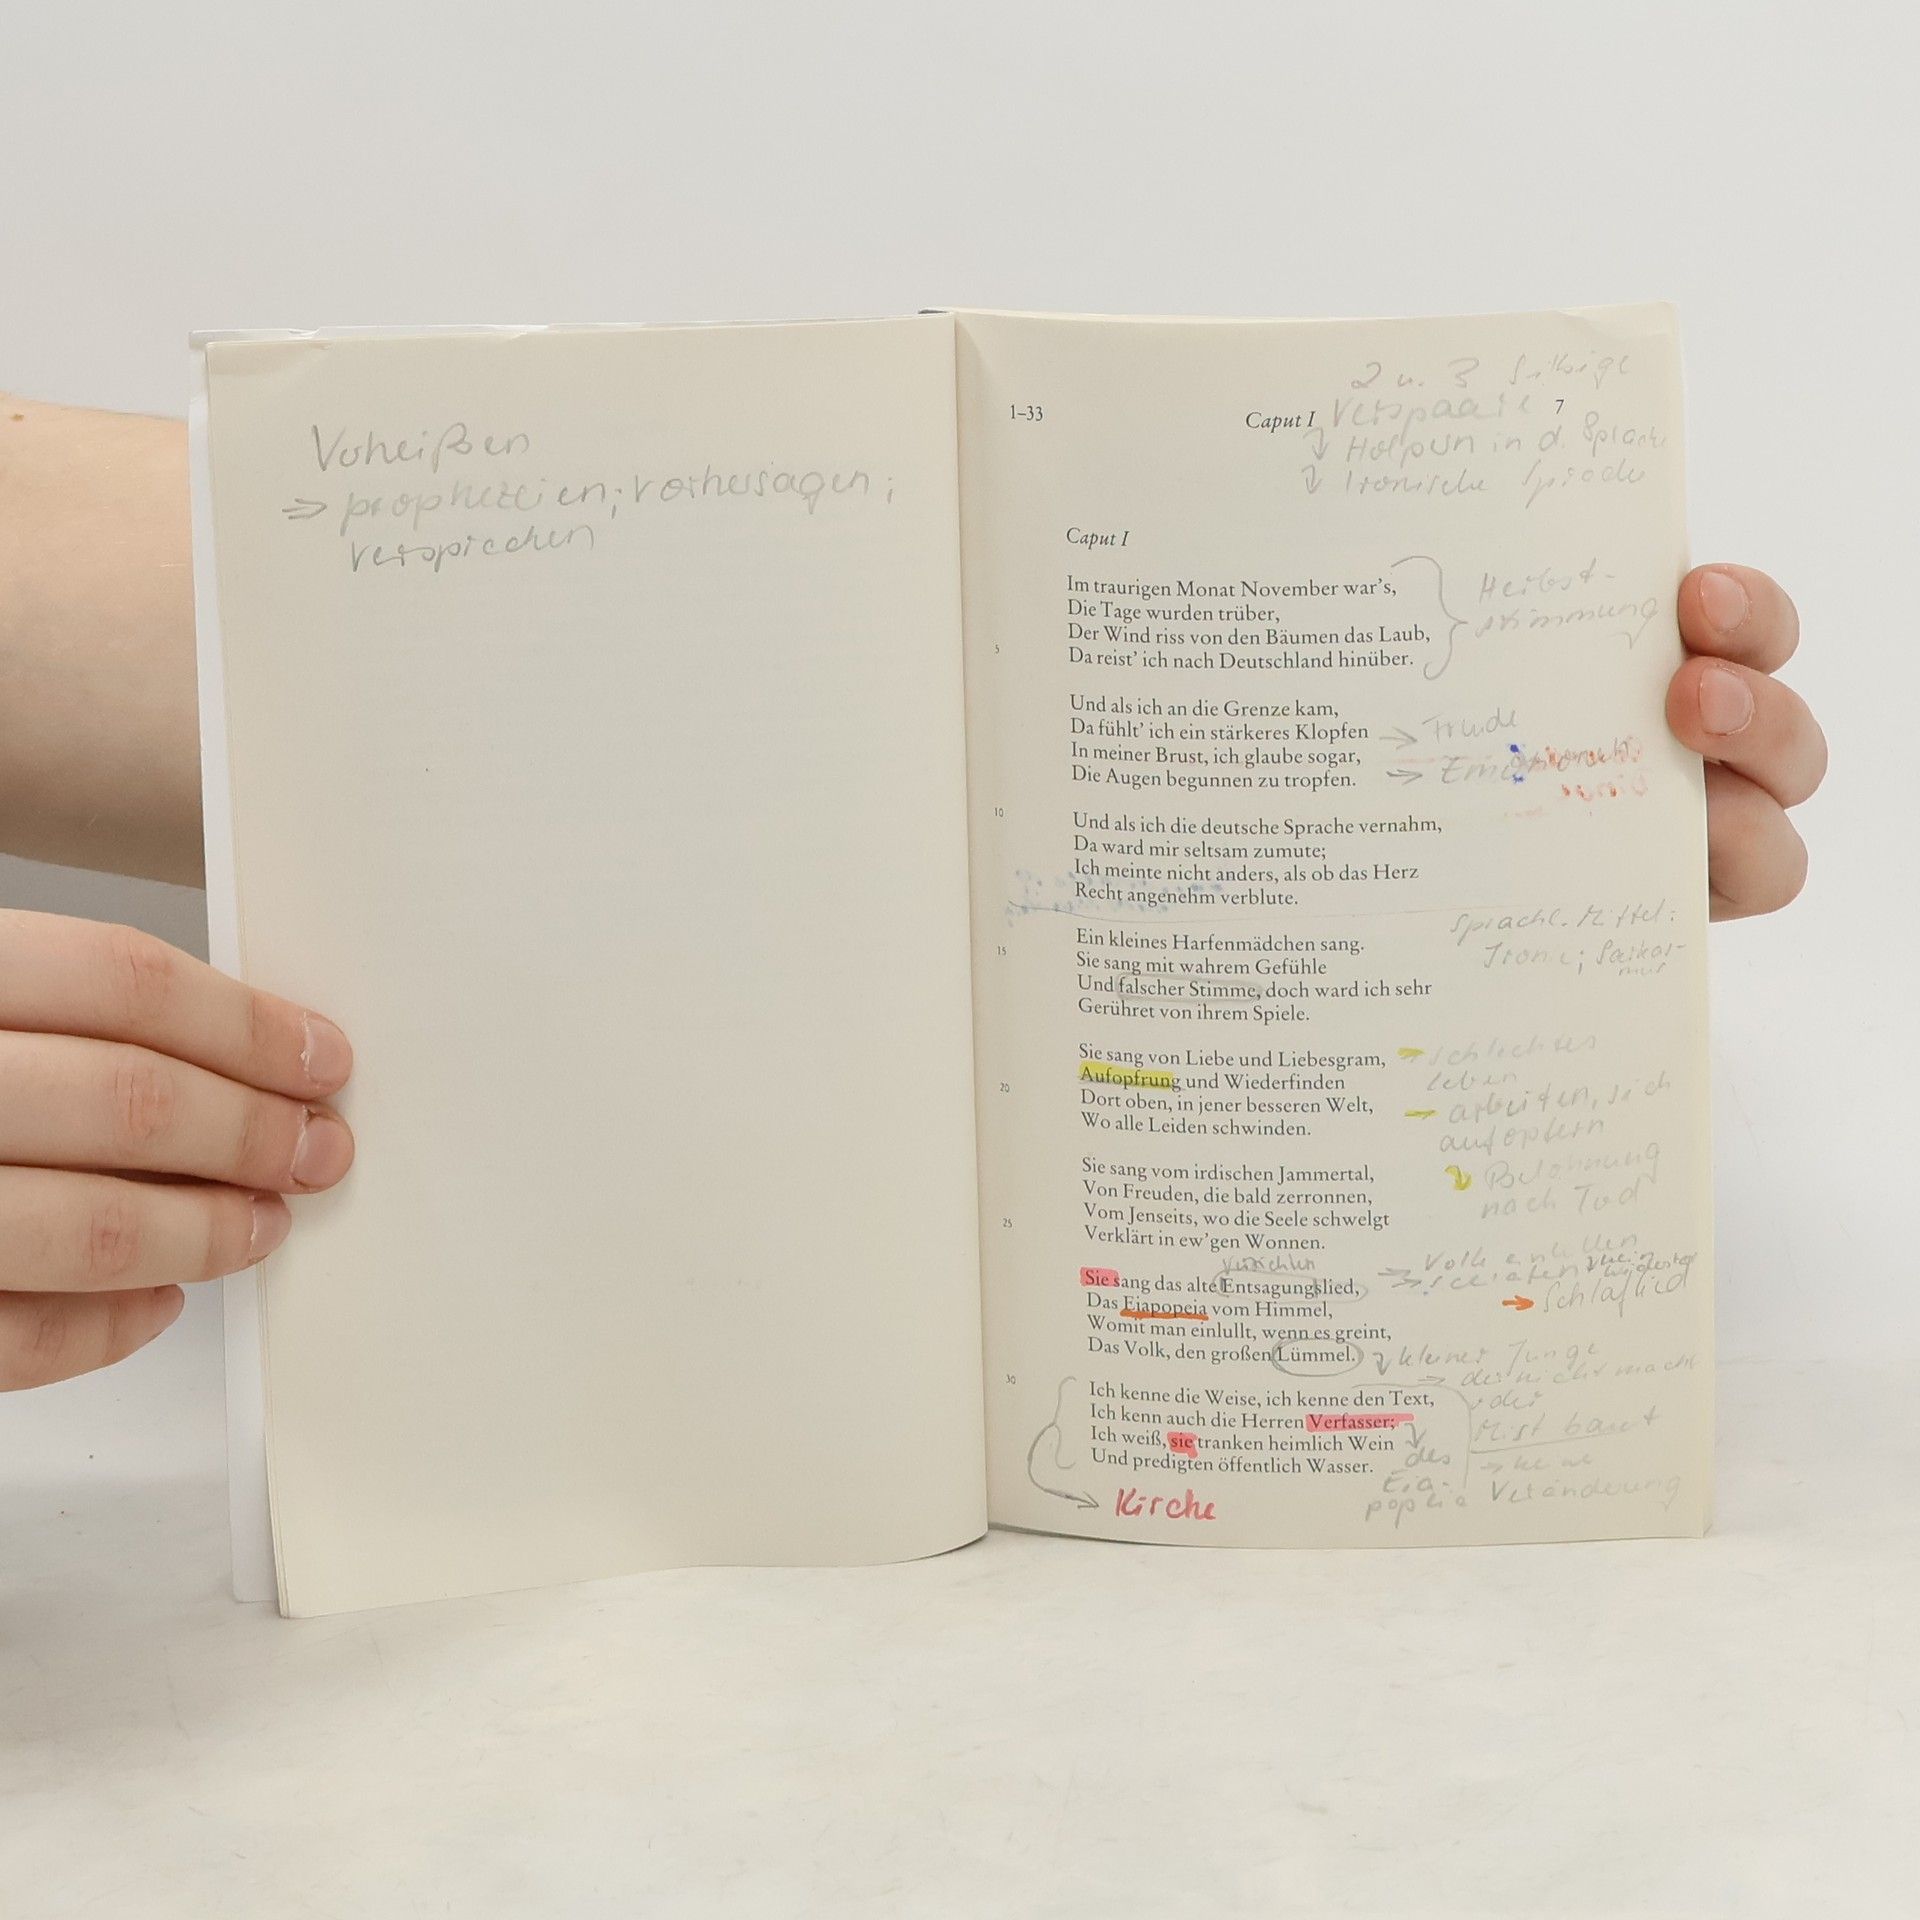 Voheißen
=> prophezeien; vorhersagen;
versprechen
2 u. 3 Silbige
1–33
Caput I
Verspaare
7
Holpern in d. Sprache
Ironische Sprache
Caput I
Im traurigen Monat November war’s,
Die Tage wurden trüber,
Der Wind riss von den Bäumen das Laub,
5
Da reist’ ich nach Deutschland hinüber.
Herbst-
stimmung
Und als ich an die Grenze kam,
Da fühlt’ ich ein stärkeres Klopfen
→ Freude
In meiner Brust, ich glaube sogar,
Die Augen begunnen zu tropfen.
10
Und als ich die deutsche Sprache vernahm,
Da ward mir seltsam zumute;
Ich meinte nicht anders, als ob das Herz
Recht angenehm verblute.
Sprachl. Mittel:
Ironie; Sarkas-
mus
15
Ein kleines Harfenmädchen sang.
Sie sang mit wahrem Gefühle
Und falscher Stimme, doch ward ich sehr
Gerühret von ihrem Spiele.
Sie sang von Liebe und Liebesgram,
Aufopfrung und Wiederfinden
20
Dort oben, in jener besseren Welt,
Wo alle Leiden schwinden.
schlechtes
leben
arbeiten, sich
aufopfern
Belohnung
nach Tod
Sie sang vom irdischen Jammertal,
Von Freuden, die bald zerronnen,
25
Vom Jenseits, wo die Seele schwelgt
Verklärt in ew’gen Wonnen.
verzichten
Sie sang das alte Entsagungslied,
Das Eiapopeia vom Himmel,
Womit man einlullt, wenn es greint,
Das Volk, den großen Lümmel.
Volk
→ Schlaflied
kleiner Junge
der nicht macht
oder
Mist baut
→ keine
Veränderung
30
Ich kenne die Weise, ich kenne den Text,
Ich kenn auch die Herren Verfasser;
Ich weiß, sie tranken heimlich Wein
Und predigten öffentlich Wasser.
des
Eia-
popeia
→ Kirche